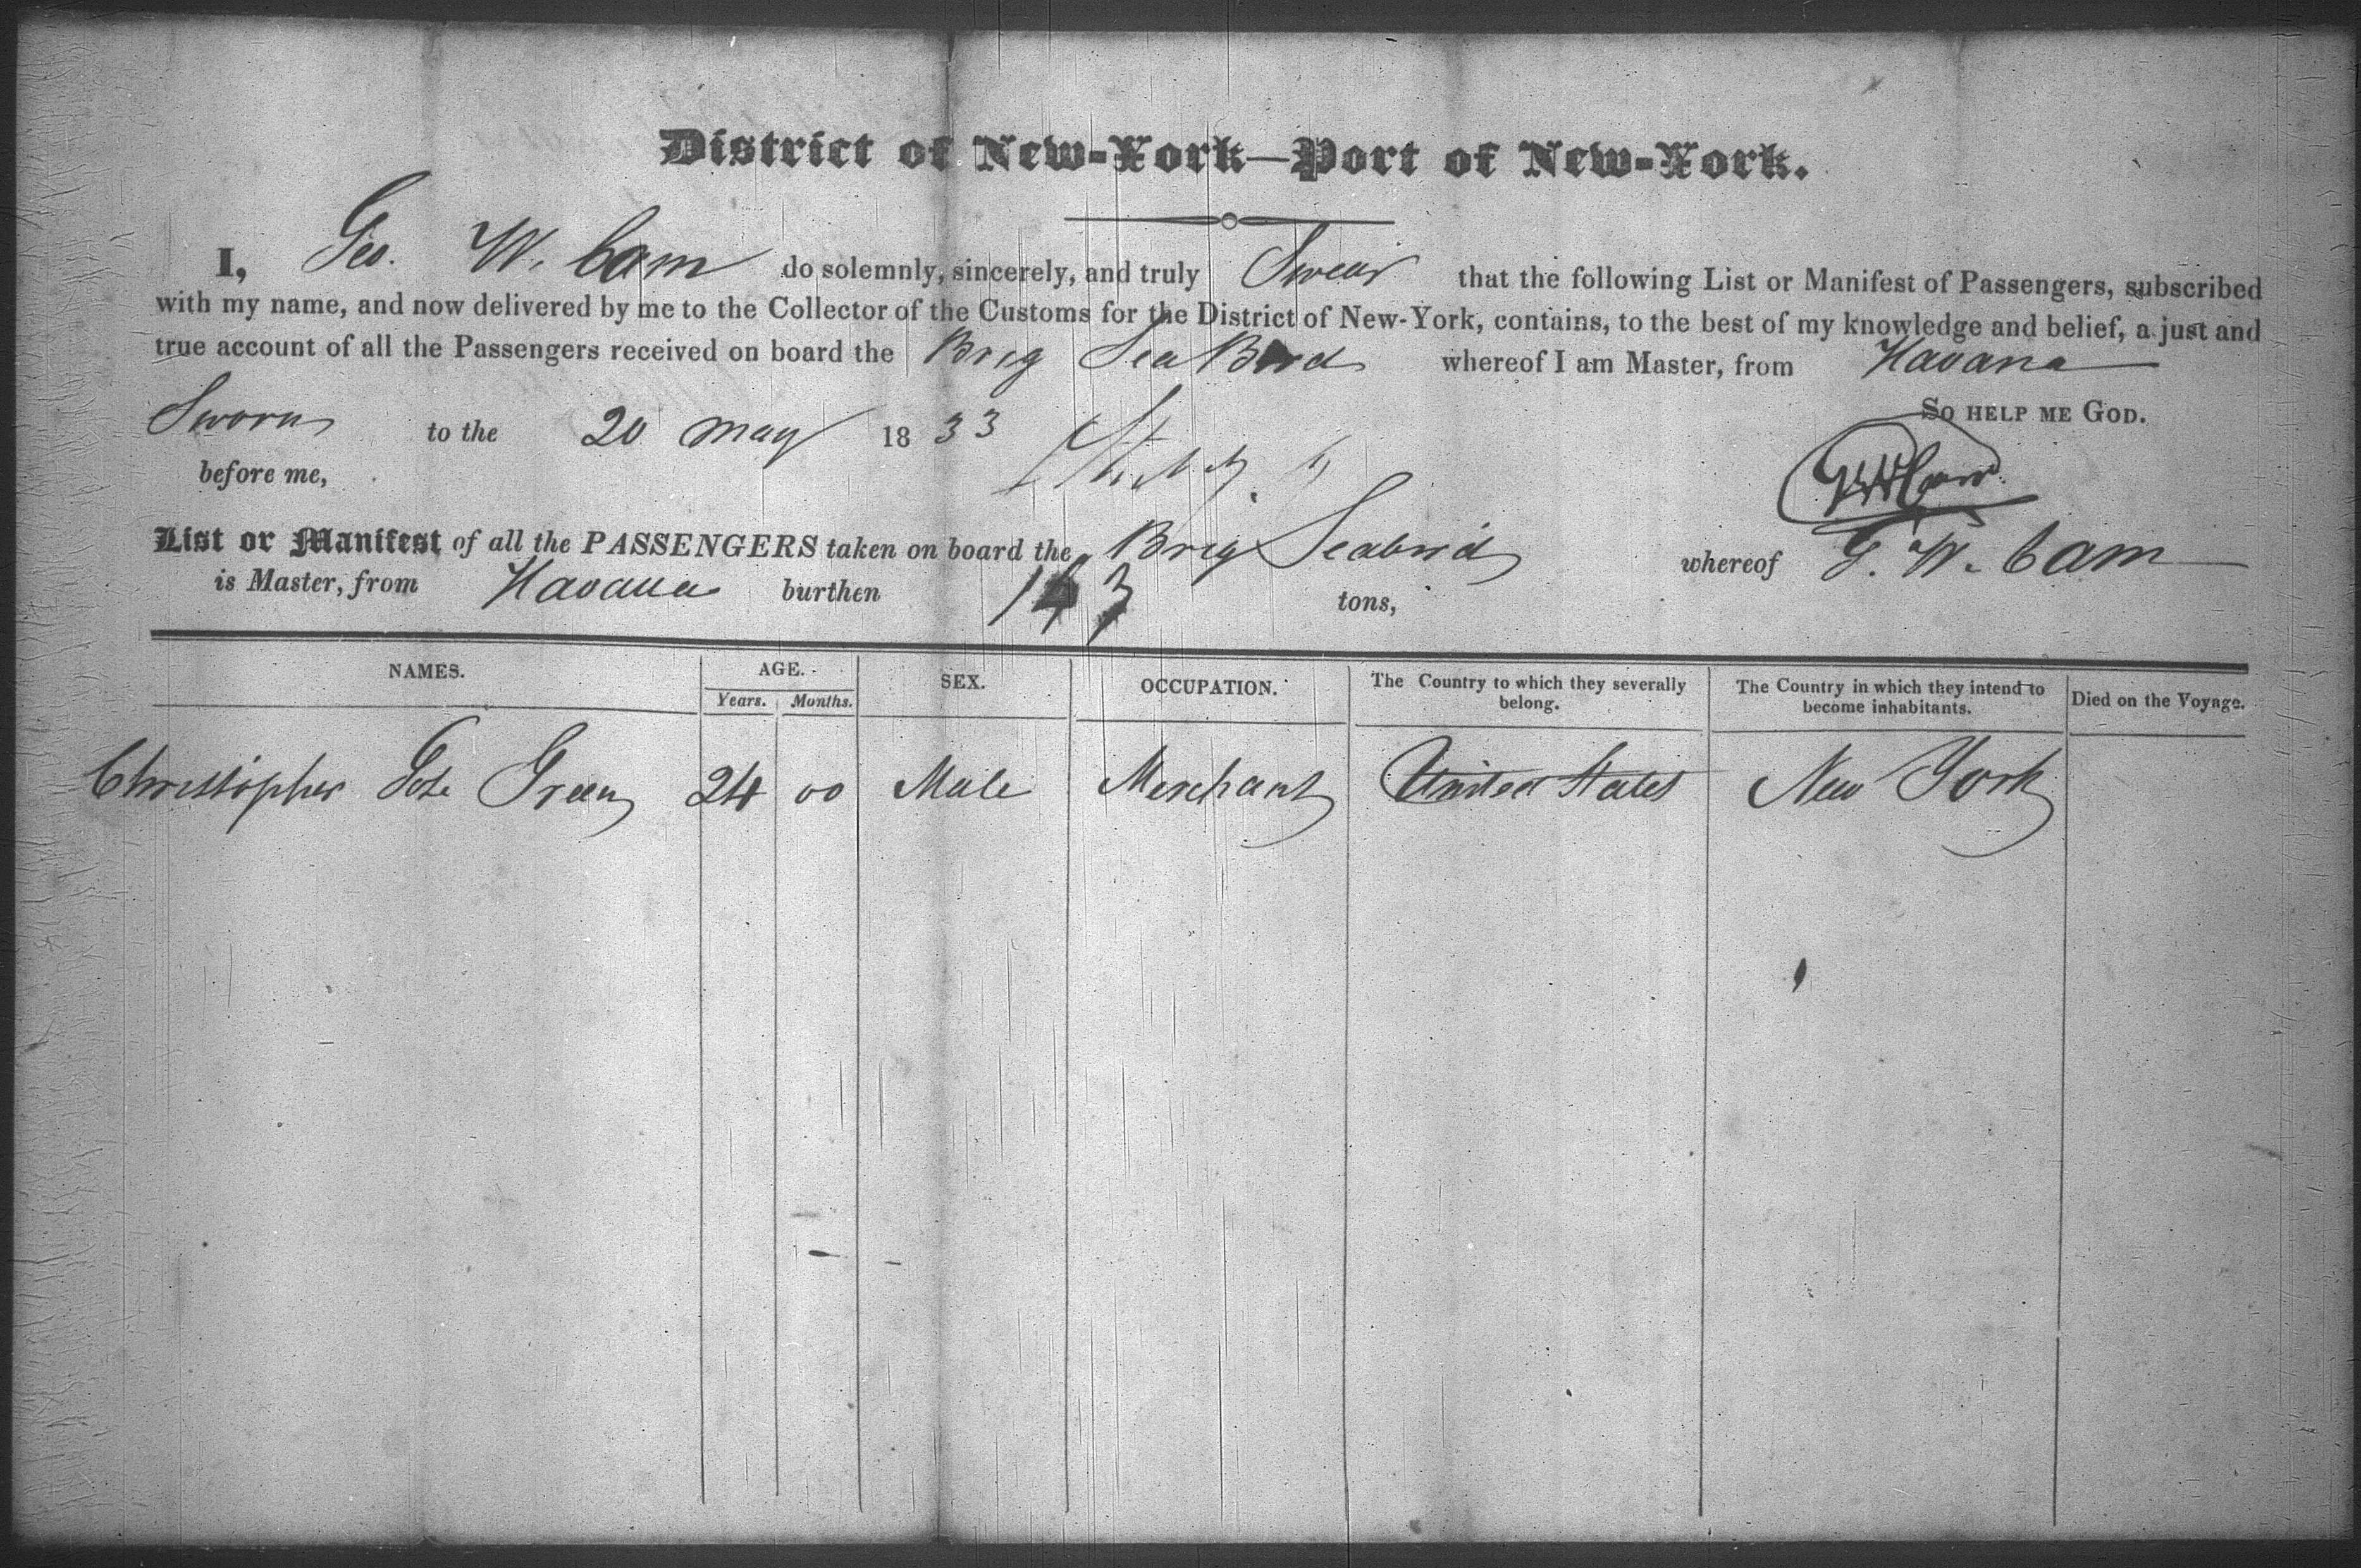 District of New-York—Port of New-York.
I, Geo. W. Cam do solemnly, sincerely, and truly Swear that the following List or Manifest of Passengers, subscribed
with my name, and now delivered by me to the Collector of the Customs for the District of New-York, contains, to the best of my knowledge and belief, a just and
true account of all the Passengers received on board the Brig Sea Bird whereof I am Master, from Havana
So help me God.
Sworn to the 20 May 1833
before me,
List or Manifest of all the PASSENGERS taken on board the Brig Seabird whereof G. W. Cam
is Master, from Havana burthen 143 tons,
NAMES. AGE. SEX. OCCUPATION. The Country to which they severally belong. The Country in which they intend to become inhabitants. Died on the Voyage.
Years. Months.
Christopher Green 24 00 Male Merchant United States New York